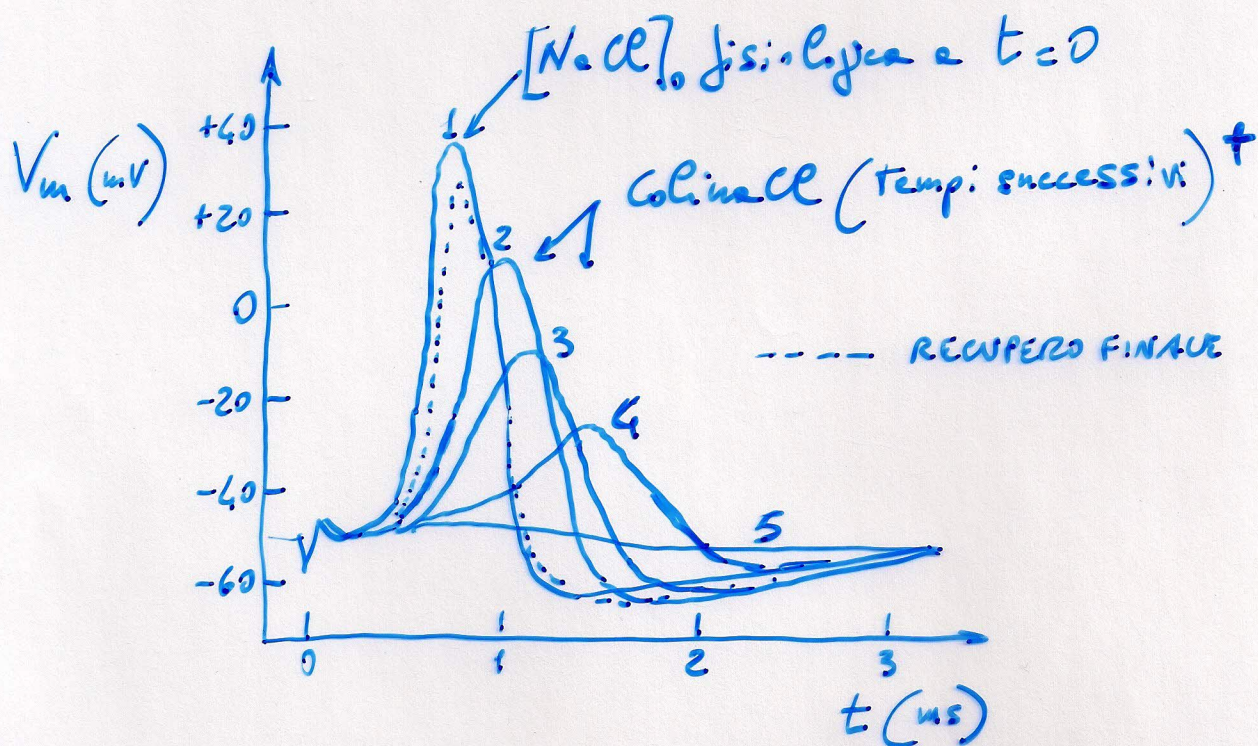 [NaCl]o fisiologica a t=0
Vm (mV)
+40
+20
0
-20
-40
-60
1
2
3
4
5
ColinaCl (tempi successivi)+
---- RECUPERO FINALE
0 1 2 3
t (ms)